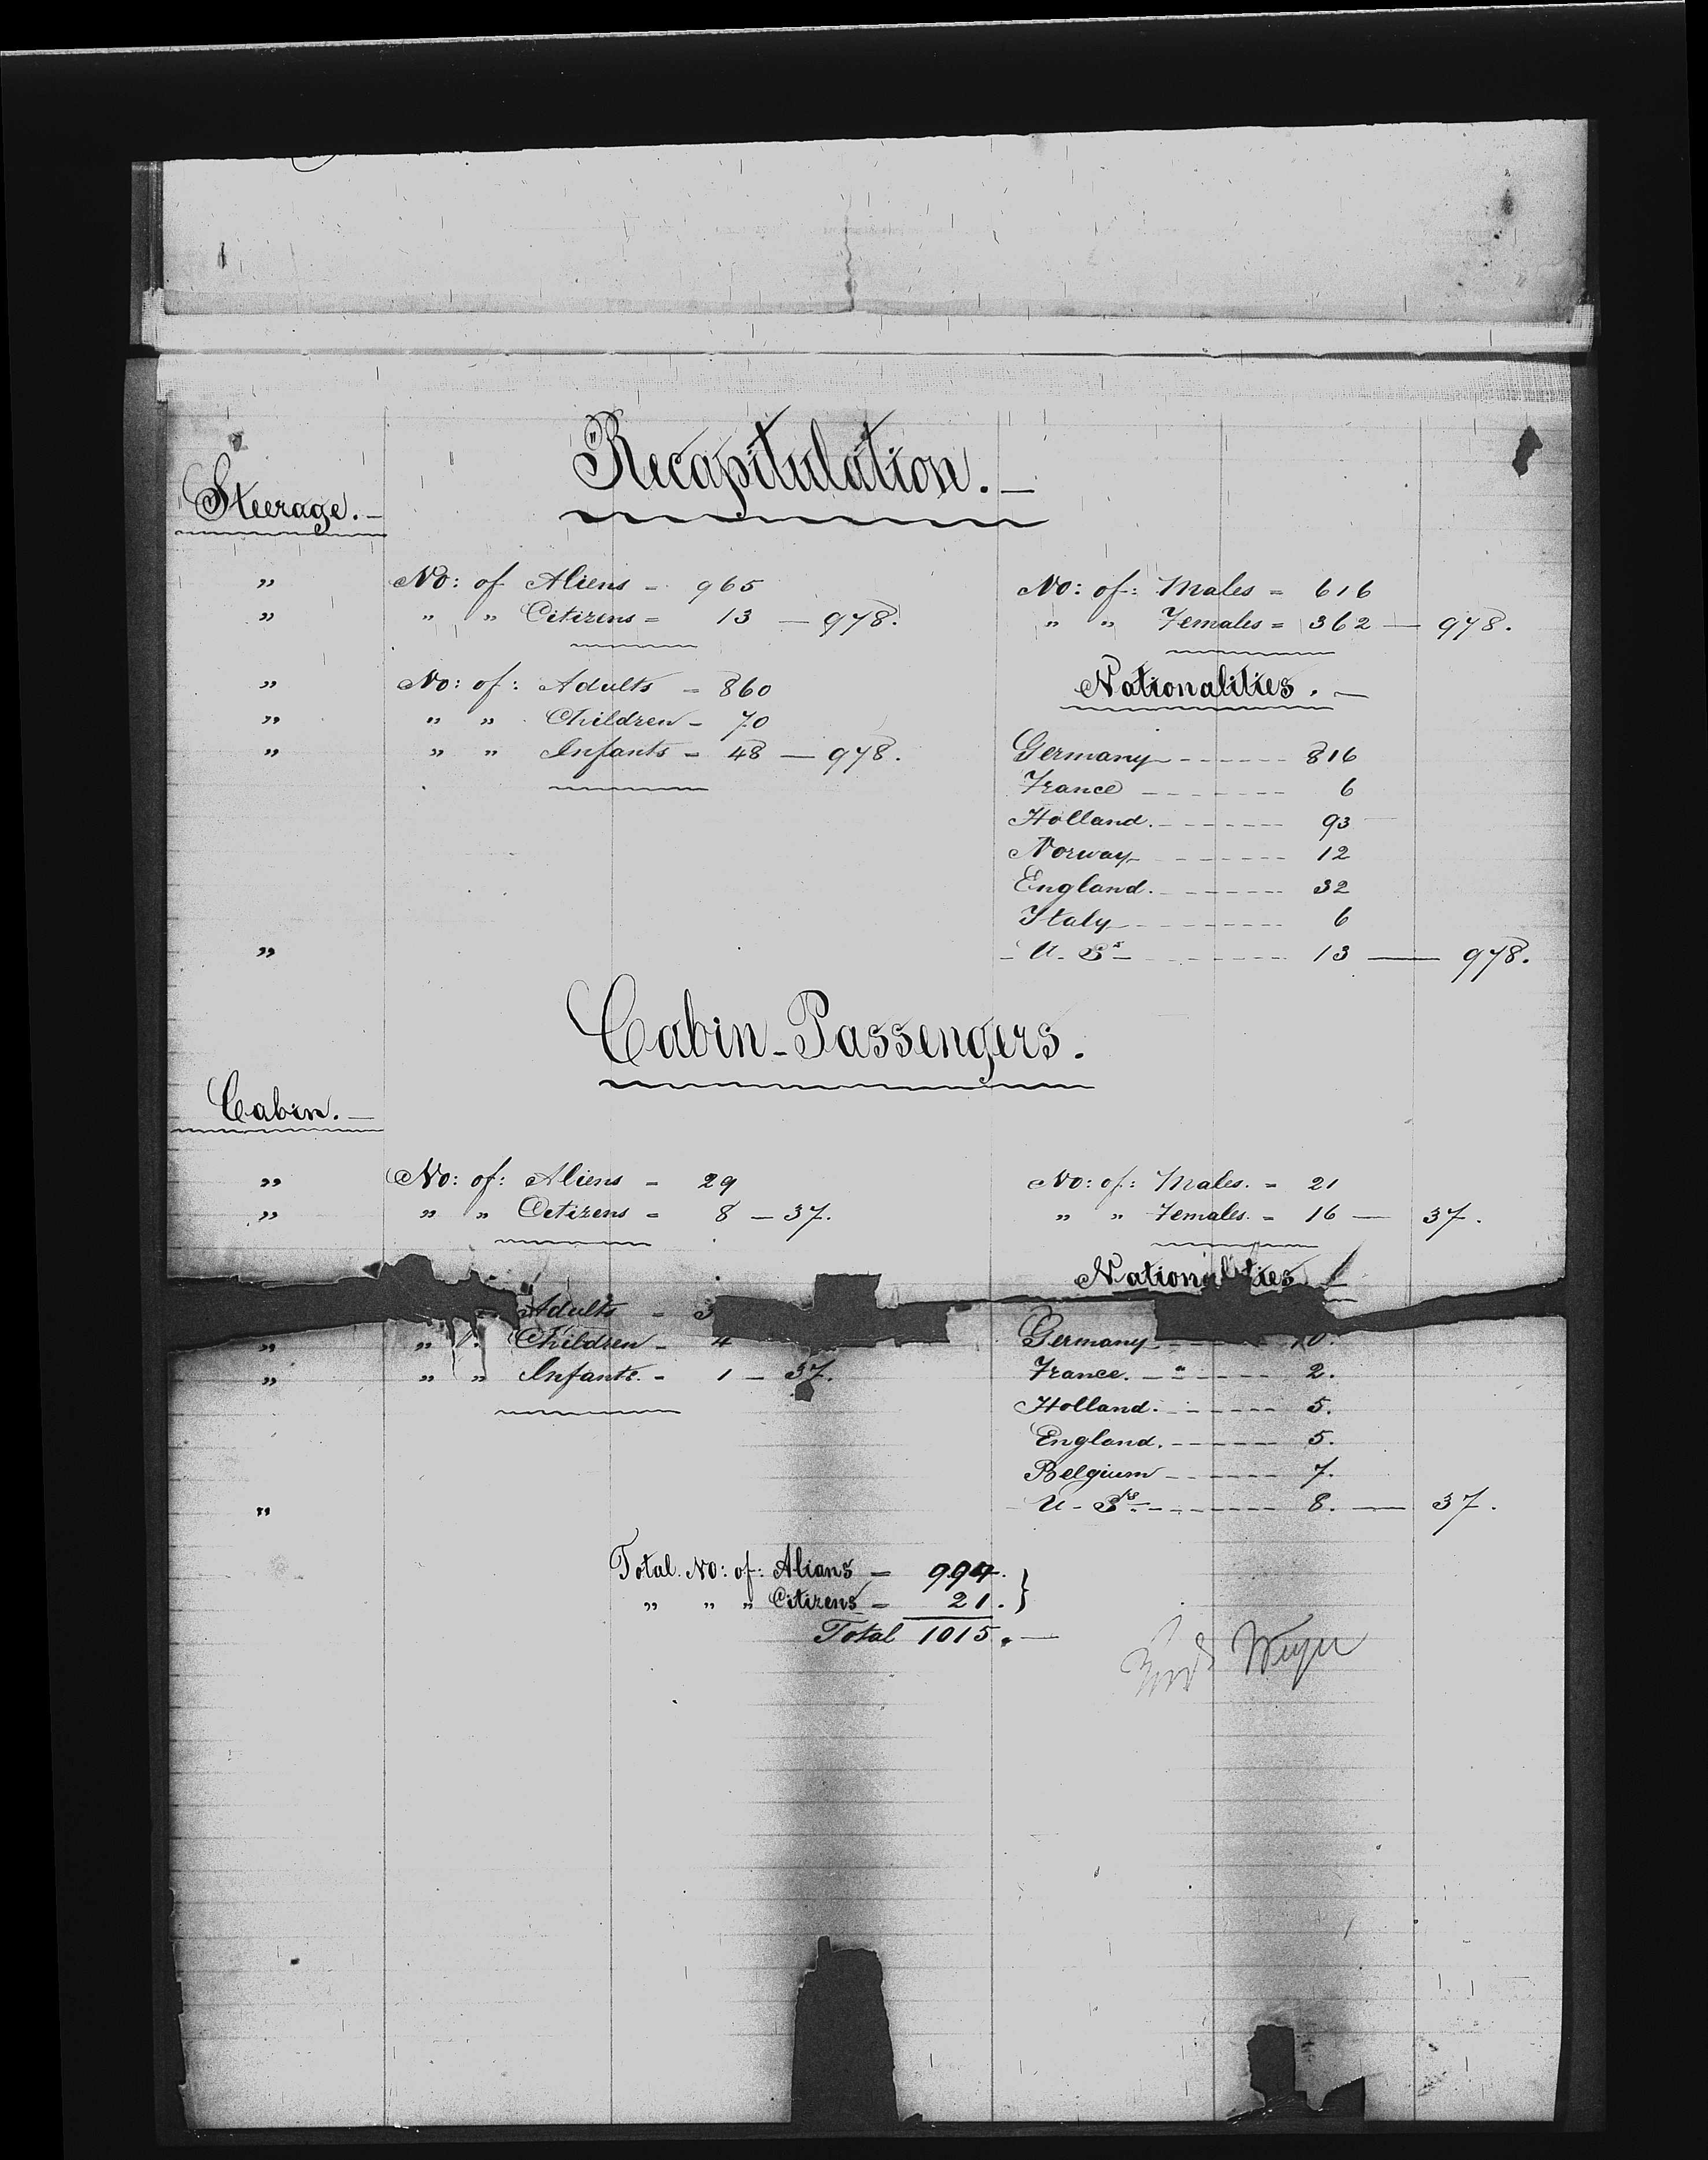 "Recapitulation.—
Steerage.—
" No: of Aliens = 965
" " " Citizens = 13 — 978.
No: of: Males = 616
" " Females = 362 — 978.
" No: of: Adults = 860
" " " Children = 70
" " " Infants = 48 — 978.
Nationalities.—
Germany 816
France 6
Holland. 93
Norway 12
England. 32
Italy 6
" U. Ss 13 — 978.
Cabin-Passengers.
Cabin.—
" No: of: Aliens = 29
" " " Citizens = 8 — 37.
No: of: Males. = 21
" " Females. = 16 — 37.
Adults = 3
" " " Children = 4
" " " Infants. = 1 — 37.
Nationalities
Germany 10.
France. 2.
Holland. 5.
England. 5.
Belgium 7.
" U. Sts. 8. — 37.
Total. No: of: Alians = 994.
" " " Citizens = 21.
Total 1015.—